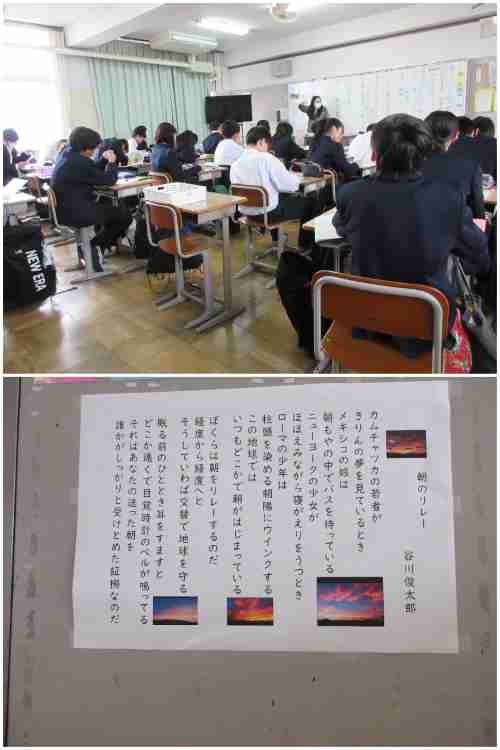 NEW ERA
朝のリレー
谷川俊太郎
カムチャッカの若者が
きりんの夢を見ているとき
メキシコの娘は
朝もやの中でバスを待っている
ニューヨークの少女が
ほほえみながら寝がえりをうつとき
ローマの少年は
柱頭を染める朝陽にウインクする
この地球では
いつもどこかで朝がはじまっている
ぼくらは朝をリレーするのだ
経度から経度へと
そうしていわば交替で地球を守る
眠る前のひととき耳をすますと
どこか遠くで目覚時計のベルが鳴ってる
それはあなたの送った朝を
誰かがしっかりと受けとめた証拠なのだ